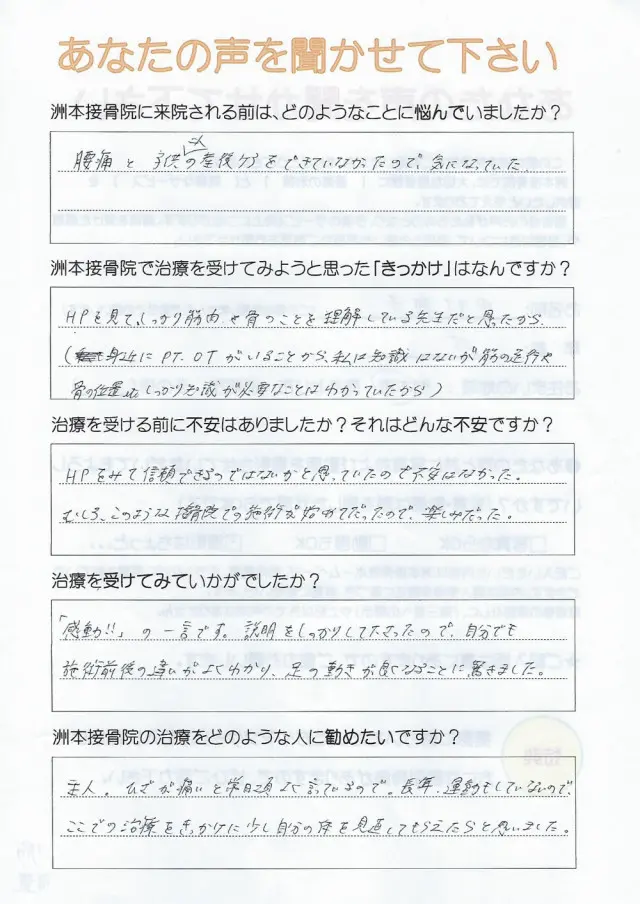 あなたの声を聞かせて下さい
洲本接骨院に来院される前は、どのようなことに悩んでいましたか？
腰痛と子供の産後ケアをできていなかったので、気になっていた。
洲本接骨院で治療を受けてみようと思った「きっかけ」はなんですか？
HPを見て、しっかり筋肉や骨のことを理解している先生だと思ったから
(身近にPT.OTがいることから、私は知識はないが筋の走行や
骨の位置etcしっかり知識が必要なことはわかっていたから)
治療を受ける前に不安はありましたか？それはどんな不安ですか？
HPをみて信頼できるのではないかと思っていたので不安はなかった。
むしろ、このような接骨院での施術が始めてだったので、楽しみだった。
治療を受けてみていかがでしたか？
「感動!!」の一言です。説明をしっかりして下さったので、自分でも
施術前後の違いがよくわかり、足の動きが良くなることに驚きました。
洲本接骨院の治療をどのような人に勧めたいですか？
主人。ひざが痛いと常日頃よく言っているので。長年、運動もしていないので、
ここでの治療をきっかけに少し自分の体を見直してもらえたらと思いました。